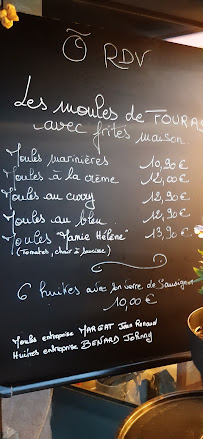 Ô RDV
Les moules de FOURAS
avec frites maison.
Moules marinières 10,90 €
Moules à la crème 12,00 €
Moules au curry 12,90 €
Moules au bleu 12,90 €
Moules "Mamie Hélène" 13,90 €
(Tomates, chair à saucisse)
6 huitres avec un verre de Sauvignon
10,00 €
Moules entreprise MARGAT Jean Renaud
Huitres entreprise BENARD Johnny